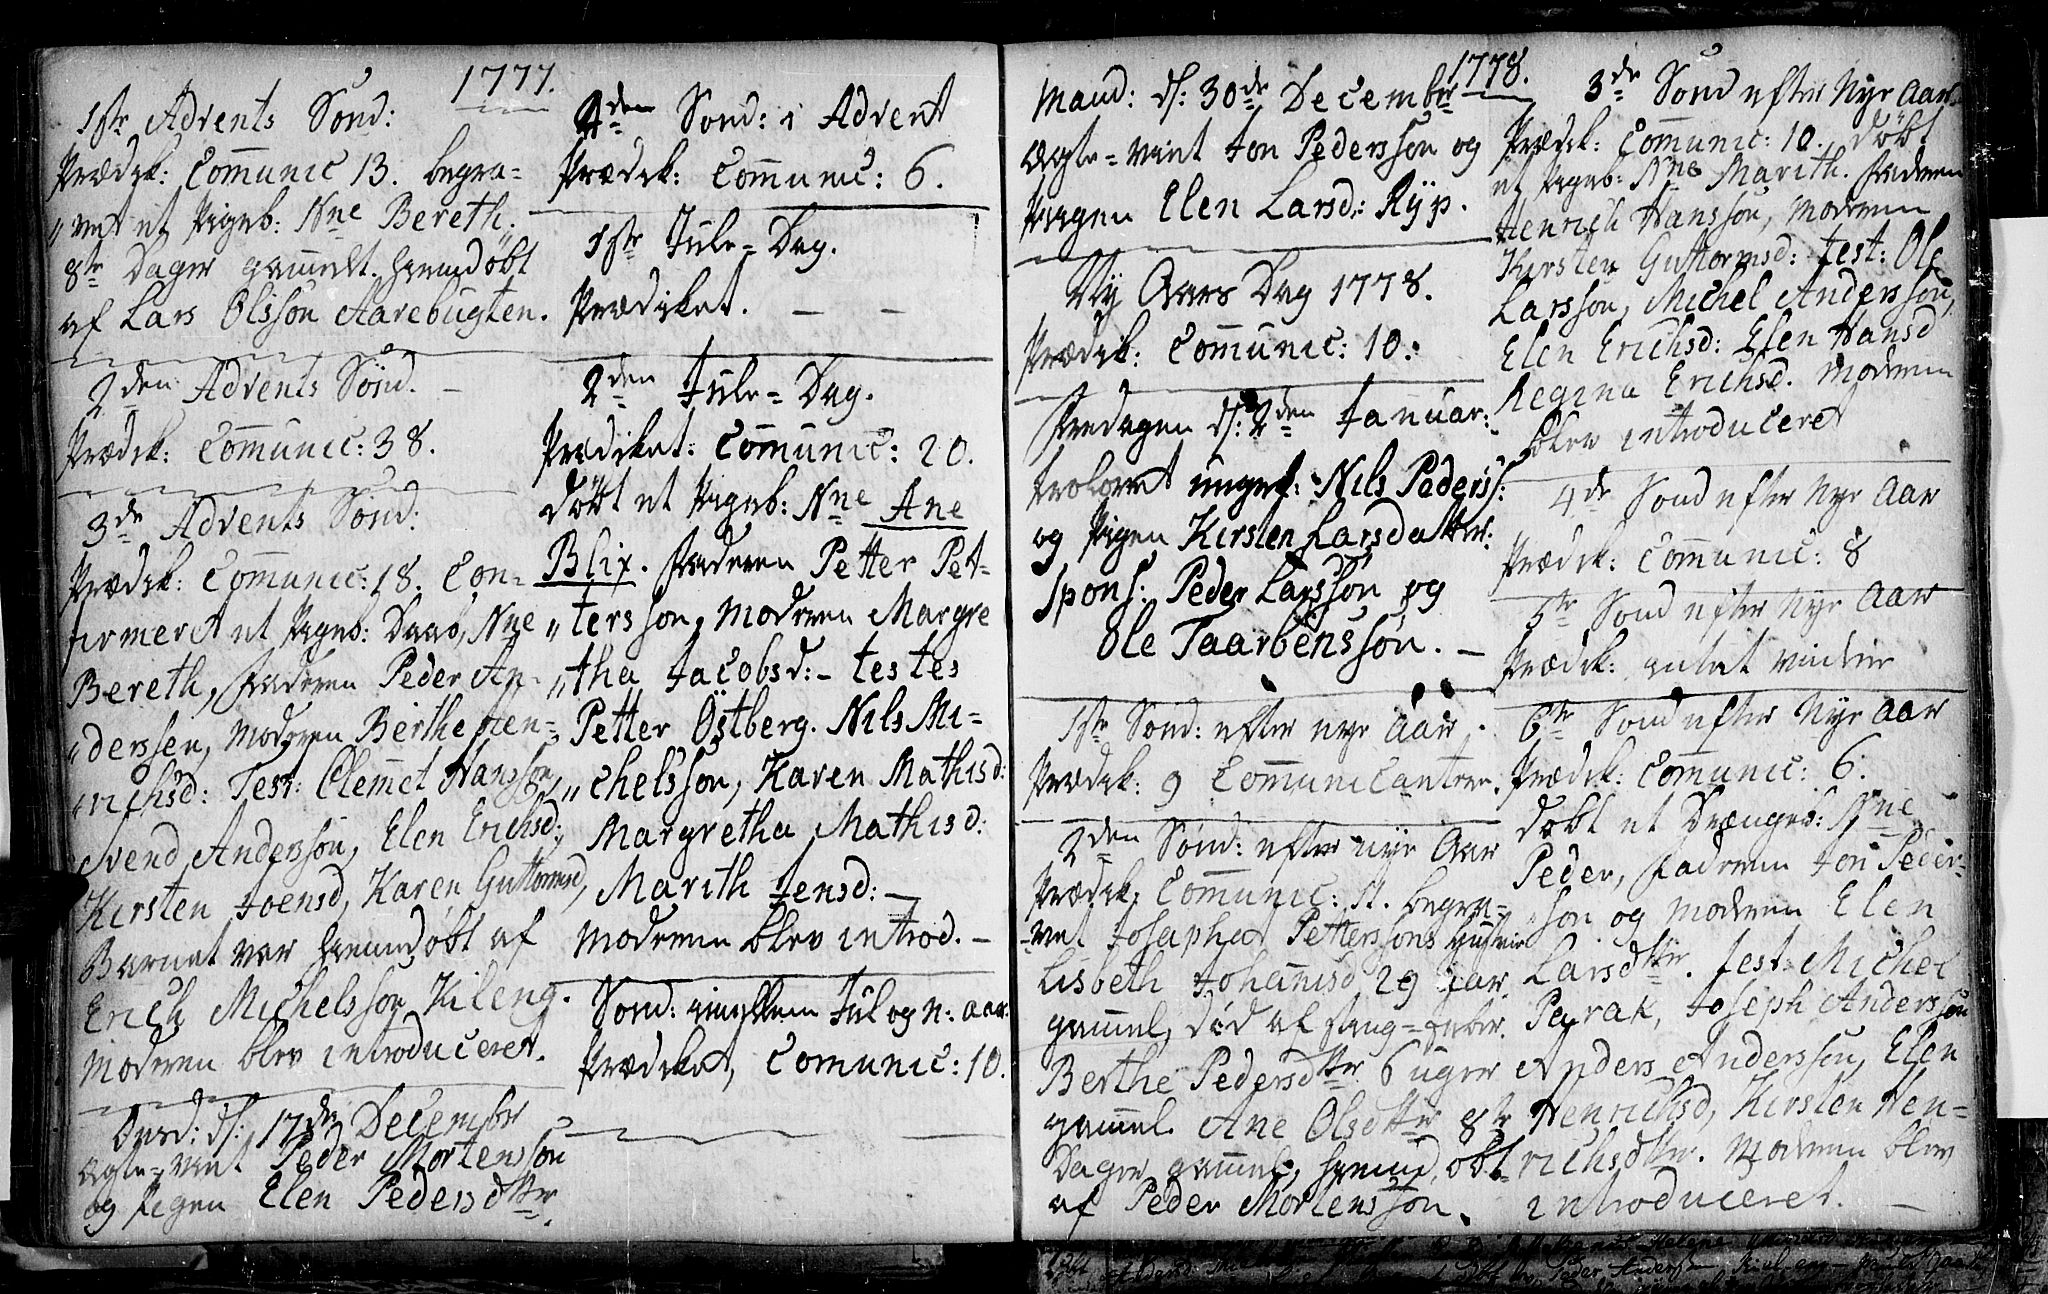 1777.
1ste Advents Sønd:
Prædik: Communic 13. begra=
„vet et Pigeb: Nne Bereth.
8te Dager gammelt. hjemdøbt
af Lars Olsson Aarebugten.
2den Advents Sønd. –
Prædik: Communic: 38.
3de Advents Sønd:
Prædik: Communic: 18. Con=
firmeret et Pigeb: Daab, Nne
Bereth, Faderen Peder An=
„derssen, Moderen Berthe Hen=
„richsd: Test: Clemmet Hansson,
Svend Andersson, Elen Erichsd:,
Kirsten Joensd, Karen Guttormsd,
Barnet var hjemdøbt af
Erich Michelsson Kileng.
Moderen blev introduceret.
Onsd: d: 17de December
Ægte=viet Peder Mortensson
og Pigen Elen Pedersdtter.
4den Sønd: i Advent
Prædik: Communic: 6.
1ste Jule=Dag.
Prædiket. – –
2den Jule=Dag.
Prædiket: Communic: 20.
døbt et Pigeb: Nne Ane
Blix. Faderen Petter Pet=
„tersson, Moderen Margre
„tha Jacobsd: – testes
Petter Östberg. Nils Mi=
„chelsson, Karen Mathisd:
Margretha Mathisd:
Marith Jensd: –
Moderen blev introd. –
Sønd: imellem Jul og N: aar:
Prædiket, Comunic: 10.
1778.
Mand: d: 30de December
Ægte=viet Jon Pedersson og
Pigen Elen Larsd: Ryp.
Ny Aars Dag 1778.
Prædik: Communic: 10.
Fredagen d: 2den Januar:
trolovet ungk: Nils Pederss:
og Pigen Kirsten Larsdatter:
Spons: Peder Larsson og
Ole Taarbensson. –
1ste Sønd: efter nye Aar.
Prædik: 9 Communicantere.
2den Sønd: efter nye Aar
Prædik, Communic: 11. begra=
=vet Josephа Petterssons Hustrue
Lisbeth Johannisd 29 Aar
gammel, død af Feber.
Berthe Pedersdtter 6 uger
gammel. Ane Olsdtter 8te
Dager gammel, hjemdøbt
af Peder Mortensson.
3de Sønd efter Nye Aar.
Prædik: Communic: 10. døbt
et Pigeb: Nne Marith. Faderen
Henrich Hansson, Moderen
Kirsten Guttormsd: test: Ole
Larsson, Michel Andersson,
Elen Erichsd: Elen Hansd
Regina Erichsd. Moderen
blev introduceret
4de Sønd efter Nye Aar
Prædik: Communic: 8
5te Sønd efter Nye Aar
Prædik: intet videre
6te Sønd efter Nye Aar
Prædik: Communic: 6.
døbt et Drængeb: Nne
Peder, Faderen Jon Peder=
„son og Moderen Elen
Larsdtter. test: Michel
Parak, Joseph Andersson
Anders Andersson, Elen
Henrichsd, Kirsten Hen=
richsdtter. Moderen blev
introduceret. –